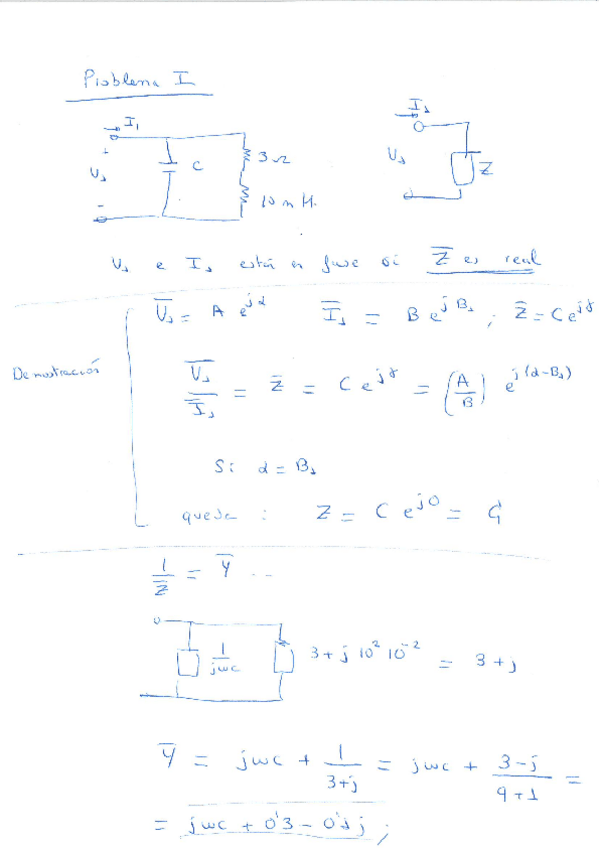 Problema I
I₁
I₁
+
U₁
-
C
3 Ω
10 m H.
U₁
Z
U₁ e I₁ están en fase si Z̅ es real
U̅₁ = A e^{jα} I̅₁ = B e^{jB₁} ; Z̅ = C e^{jγ}
Demostración
U̅₁/I̅₁ = Z̅ = C e^{jγ} = (A/B) e^{j(α-B₁)}
Si α = B₁
queda : Z = C e^{j0} = C
1/Z̅ = Y̅ ...
1/jωc
3 + j 10² 10⁻² = 3 + j
Y̅ = jωc + 1/(3+j) = jωc + (3-j)/(9+1) =
= jωc + 0'3 - 0'1j ;